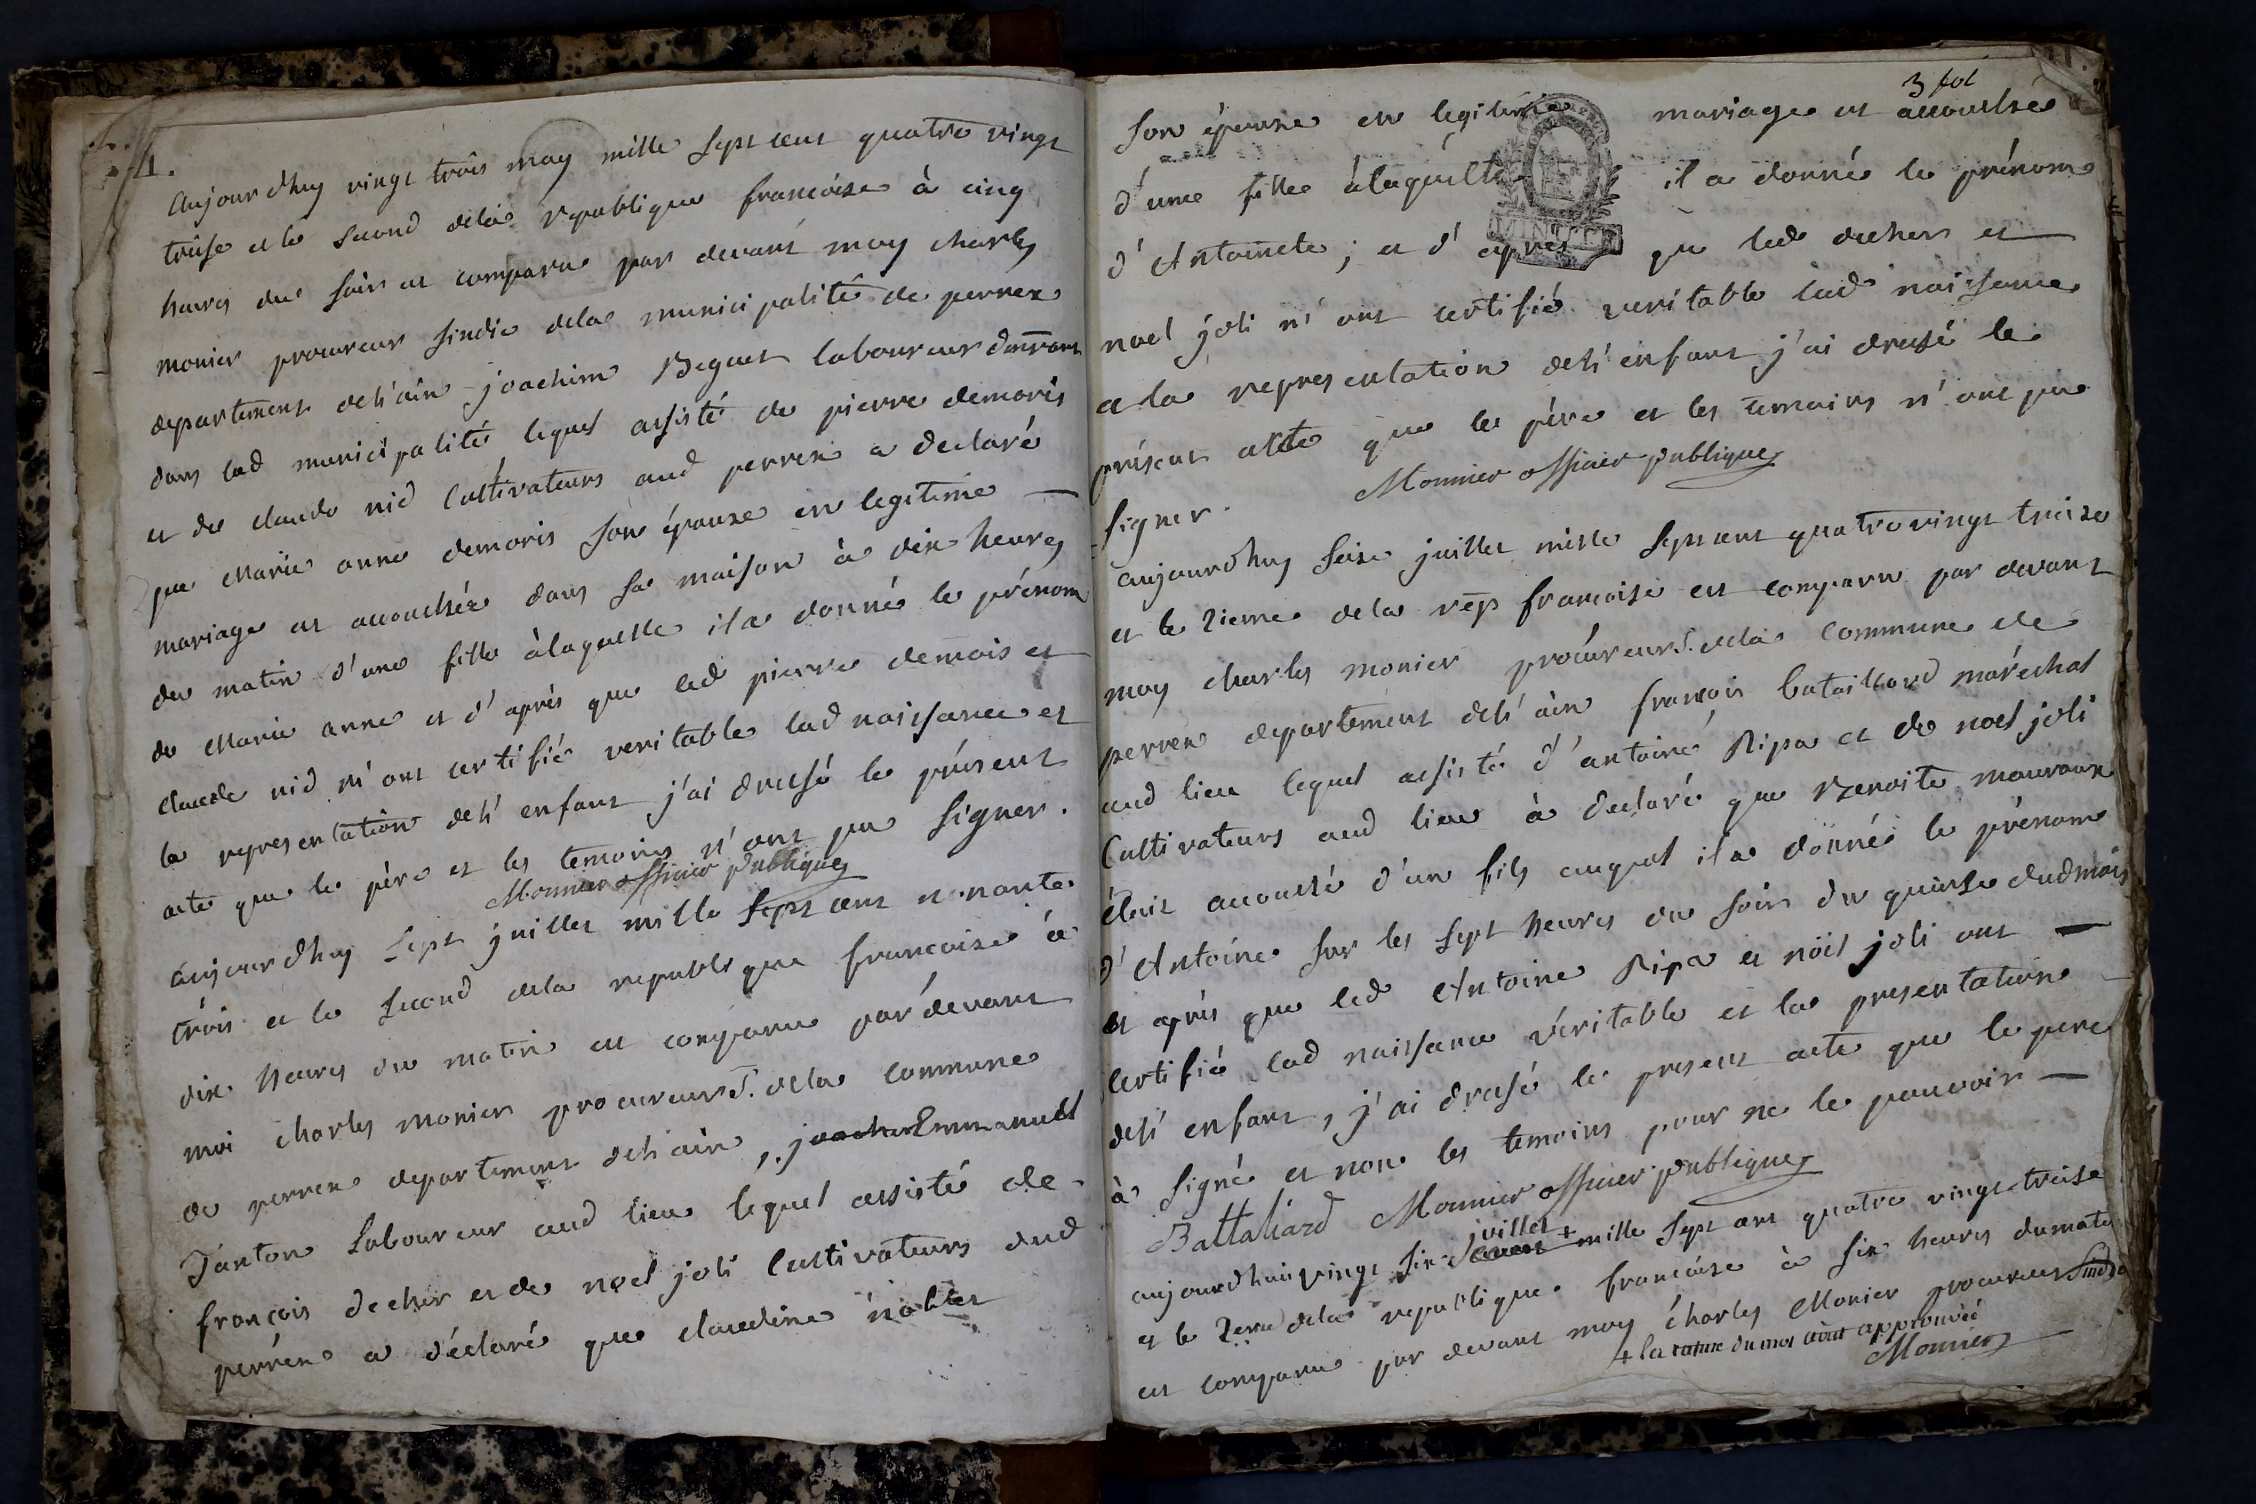 4.
aujourdhuy vingt trois may mille sept cent quatre vingt
treise et le second dela republique francoise à cinq
heures du soir est comparu par devant moy charles
monier procureur sindic dela municipalité de perrex
departement del'ain joachim Beguet laboureur demeurant
dans lad municipalité lequel assisté de pierre demoris
et de claude nid cultivateurs aud perrex a declaré
que Marie anne demoris son épouse en legitime
mariage est accouchée dans sa maison à dix heures
du matin d'une fille àlaquelle il a donné le prénom
de Marie anne et d'après que led pierre demoris et
claude nid m'ont certifié veritable lad naissance et
la representation del'enfant j'ai dressé le présent
acte que le père et les temoins n'ont pu signer.
Monnier officier publique
aujourdhuy sept juillet mille sept cent nonante
trois et le second dela republique francoise à
dix heures du matin est comparu pardevant
moi charles monier procureur S. dela commune
de perrex departement del'ain, joachim Emmanuel
Janton laboureur aud lieu lequel assisté de
françois decher et de noel joli cultivateurs dud
perrex a déclaré que claudine
3 fol
son épouse en legitime mariage est accouchée
d'une fille àlaquelle il a donné le prénom
d'Antoinete; et d'après que led decher et
noel joli m'ont certifié veritable lad naissance
et la representation del'enfant j'ai dressé le
présent acte que le père et les temoins n'ont pu
signer.
Monnier officier publique
MINUTE
aujourdhuy seise juillet mille sept cent quatre vingt treize
et le 2ieme dela rep francoise est comparu par devant
moy charles monier procureur S. dela commune de
perrex departement del'ain françois bataillard maréchal
aud lieu lequel assisté d'antoine Ripa et de noel joli
cultivateurs aud lieu à declaré que Benoite mauvaux
étoit accouché d'un fils auquel il a donné le prénom
d'Antoine sur les sept heures du soir du quinse dud mois
et après que led Antoine Ripa et noël joli ont
certifié lad naissance véritable et la presentation
del'enfant, j'ai dressé le present acte que le pere
à signé et non les temoins pour ne le pouvoir
Battaliard Monnier officier publique
juillet +
aujourdhui vingt six aout mille sept cent quatre vingt treise
et le 2eme dela republique francoise à six heures du matin
est comparu par devant moy charles Monier procureur sindic
+ la rature du mot aout approuvée
Monnier